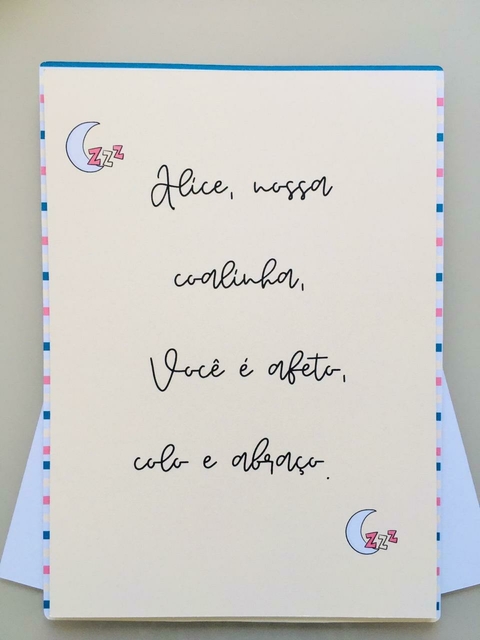 zzz
Alice, nossa
coalinha,
Você é afeto,
colo e abraço.
zzz